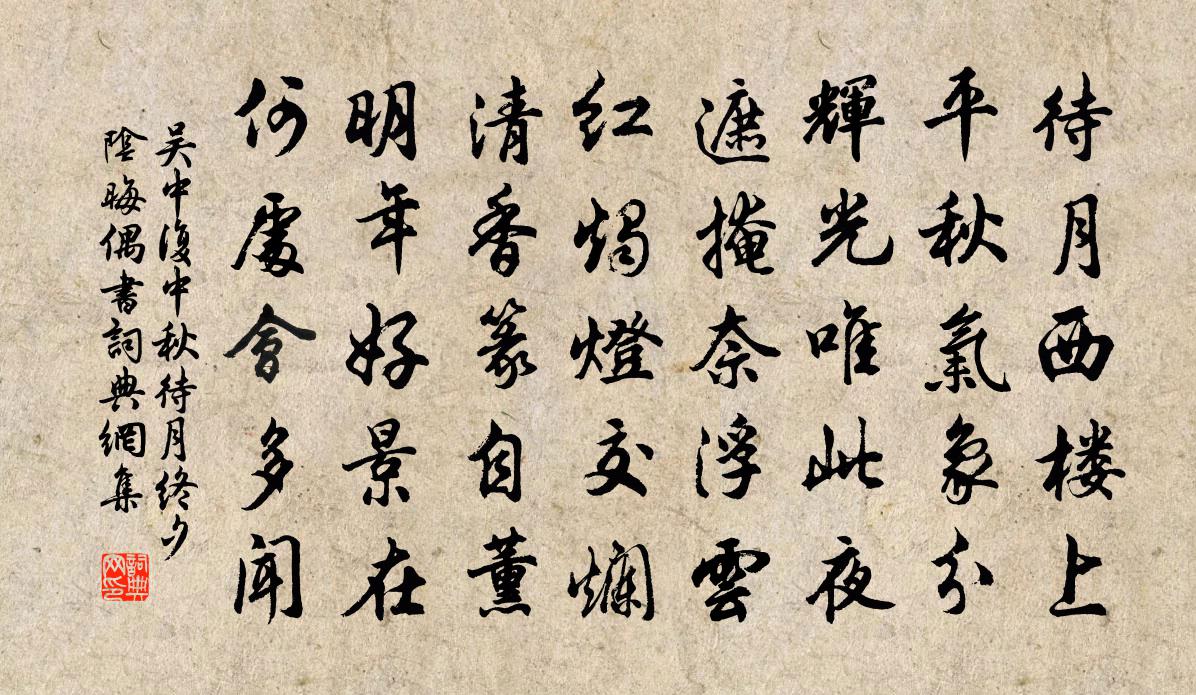 待月西楼上
平秋氣象分
輝光唯此夜
遮掩奈浮雲
红燭燈交爛
清香篆自薰
明年好景在
何處會多聞
吴中復中秋待月终夕
陰晦偶書詞典網集
詞典网印